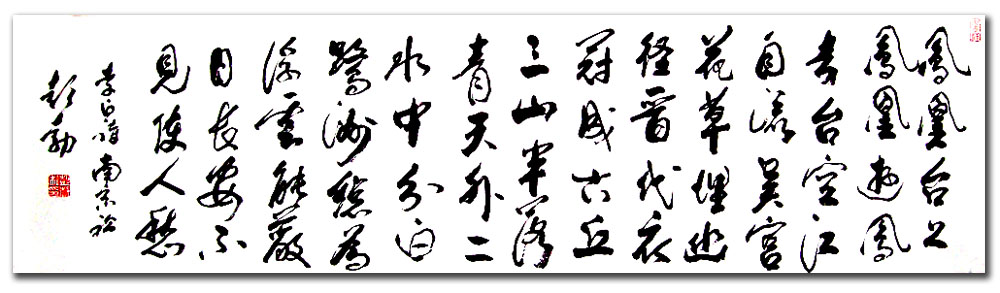 鳳凰台上
鳳凰遊鳳
去台空江
自流吴宫
花草埋幽
径晋代衣
冠成古丘
三山半落
青天外二
水中分白
鹭洲總為
浮雲能蔽
日長安不
見使人愁
李白詩南京